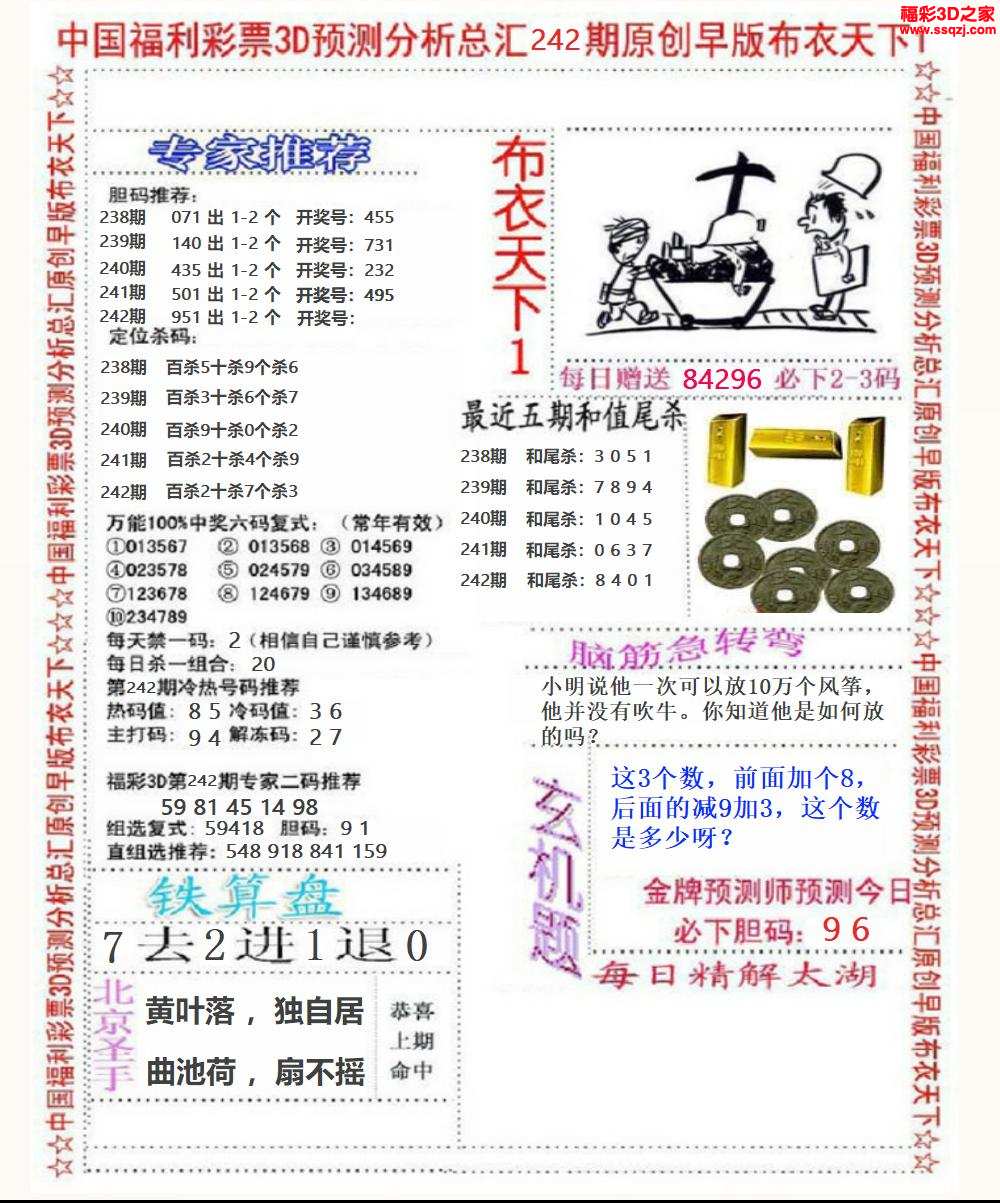 福彩3D之家
www.ssqzj.com
中国福利彩票3D预测分析总汇242期原创早版布衣天下1
☆☆中国福利彩票3D预测分析总汇原创早版布衣天下☆☆中国福利彩票3D预测分析总汇原创早版布衣天下☆☆
专家推荐
胆码推荐：
238期 071 出 1-2 个 开奖号：455
239期 140 出 1-2 个 开奖号：731
240期 435 出 1-2 个 开奖号：232
241期 501 出 1-2 个 开奖号：495
242期 951 出 1-2 个 开奖号：
定位杀码：
238期 百杀5十杀9个杀6
239期 百杀3十杀6个杀7
240期 百杀9十杀0个杀2
241期 百杀2十杀4个杀9
242期 百杀2十杀7个杀3
万能100%中奖六码复式：（常年有效）
①013567 ② 013568 ③ 014569
④023578 ⑤ 024579 ⑥ 034589
⑦123678 ⑧ 124679 ⑨ 134689
⑩234789
每天禁一码：2（相信自己谨慎参考）
每日杀一组合：20
第242期冷热号码推荐
热码值：8 5 冷码值：3 6
主打码：9 4 解冻码：2 7
福彩3D第242期专家二码推荐
59 81 45 14 98
组选复式：59418 胆码：9 1
直组选推荐：548 918 841 159
铁算盘
7去2进1退0
北京圣手
黄叶落，独自居
曲池荷，扇不摇
恭喜
上期
命中
布衣天下1
每日赠送 84296 必下2-3码
最近五期和值尾杀
238期 和尾杀：3 0 5 1
239期 和尾杀：7 8 9 4
240期 和尾杀：1 0 4 5
241期 和尾杀：0 6 3 7
242期 和尾杀：8 4 0 1
脑筋急转弯
小明说他一次可以放10万个风筝，
他并没有吹牛。你知道他是如何放
的吗？
玄机题
这3个数，前面加个8，
后面的减9加3，这个数
是多少呀？
金牌预测师预测今日
必下胆码：9 6
每日精解太湖
☆☆中国福利彩票3D预测分析总汇原创早版布衣天下☆☆中国福利彩票3D预测分析总汇原创早版布衣天下☆☆